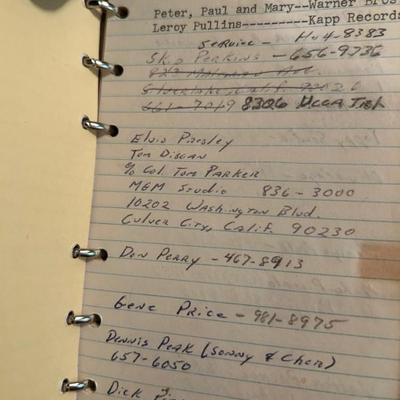 Peter, Paul and Mary--Warner Bros
Leroy Pullins---------Kapp Records
Service - Hu4-8383
Skip Perkins - 656-9736
Silverlake, Calif. 90026
661-7019 8306
Elvis Presley
Tom Diskin
% Col. Tom Parker
MGM Studio 836-3000
10202 Washington Blvd.
Culver City, Calif. 90230
Don Perry - 467-8913
Gene Price - 981-8975
Dennis Peak (Sonny & Cher)
657-6050
Dick